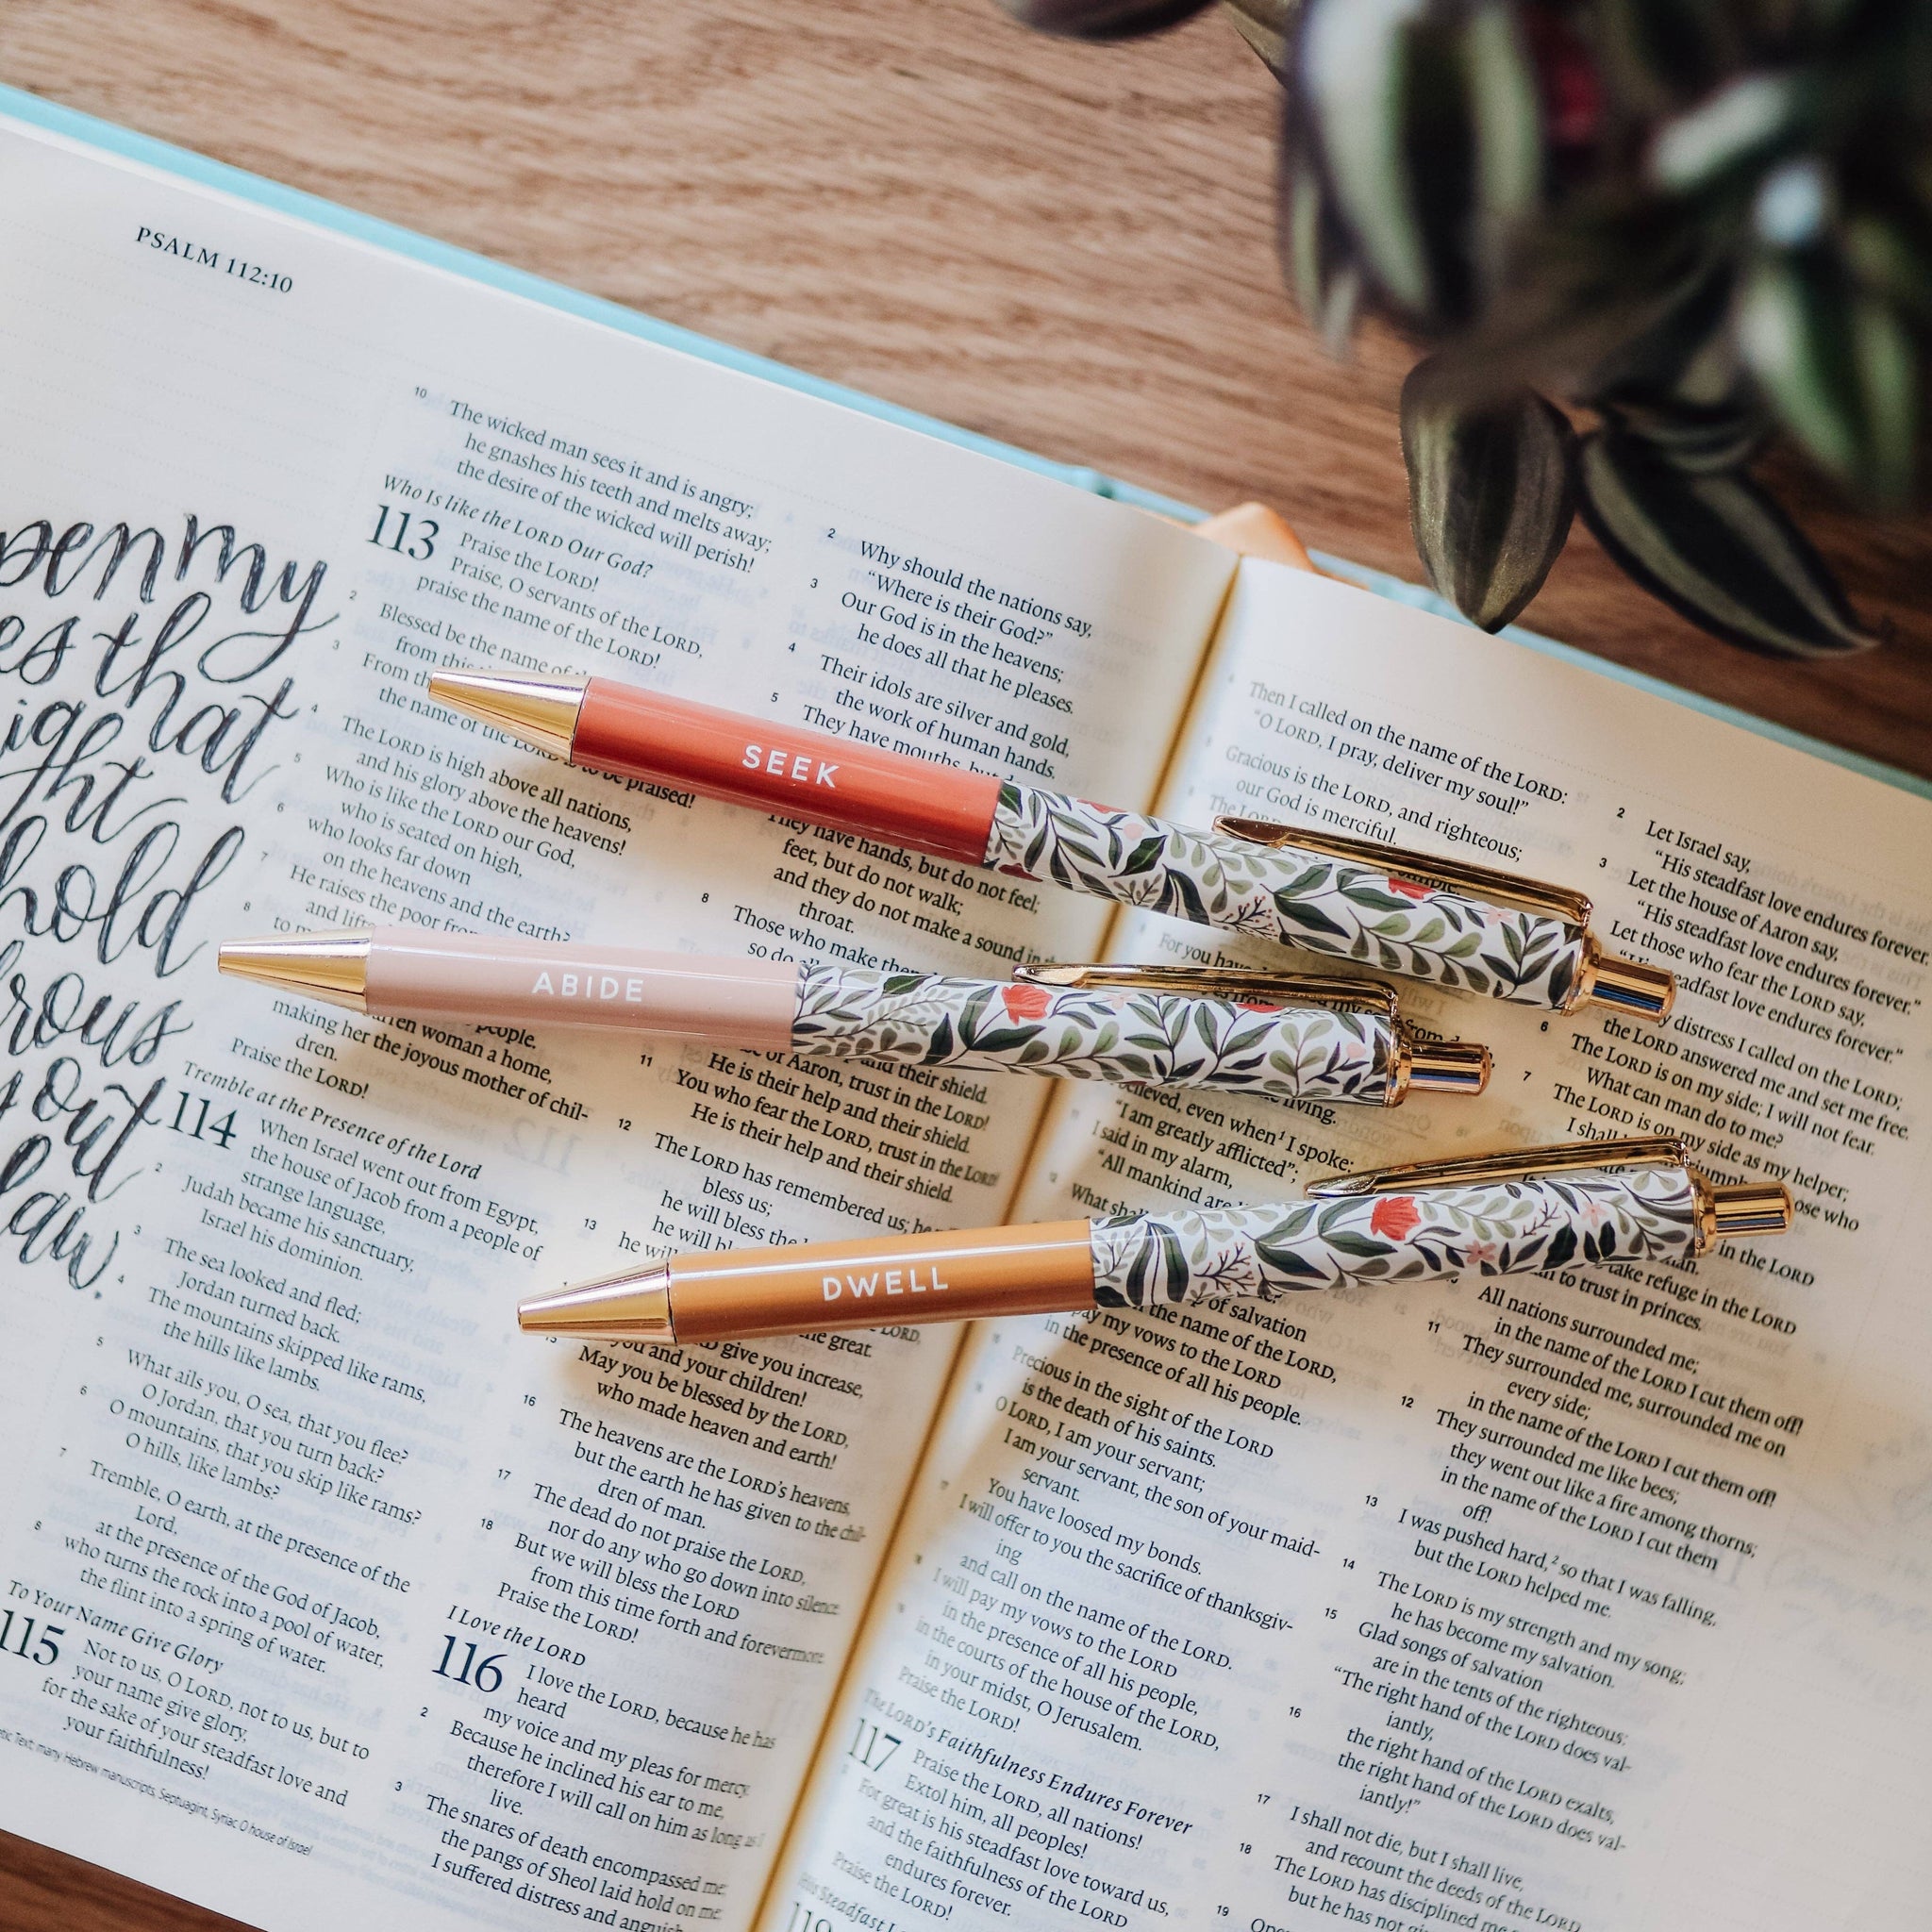 PSALM 112:10
pen my
es that
ight
hold
rous
out
law.
10 The wicked man sees it and is angry;
he gnashes his teeth and melts away;
the desire of the wicked will perish!
Who Is like the LORD Our God?
113 Praise the LORD!
Praise, O servants of the LORD,
praise the name of the LORD!
2 Blessed be the name of
from this
3 From
the name of the LORD is to be praised!
4 The LORD is high above all nations,
and his glory above the heavens!
5 Who is like the LORD our God,
who is seated on high,
6 who looks far down
on the heavens and the earth?
7 He raises the poor from
and lifts
8 to
people.
woman a home,
making her the joyous mother of chil-
dren.
Praise the LORD!
Tremble at the Presence of the Lord
114 When Israel went out from Egypt,
the house of Jacob from a people of
strange language,
2 Judah became his sanctuary,
Israel his dominion.
3 The sea looked and fled;
Jordan turned back.
4 The mountains skipped like rams,
the hills like lambs.
5 What ails you, O sea, that you flee?
O Jordan, that you turn back?
6 O mountains, that you skip like rams?
O hills, like lambs?
7 Tremble, O earth, at the presence of the
Lord,
at the presence of the God of Jacob,
8 who turns the rock into a pool of water,
the flint into a spring of water.
To Your Name Give Glory
115 Not to us, O LORD, not to us, but to
your name give glory,
for the sake of your steadfast love and
your faithfulness!
Text; many Hebrew manuscripts, Septuagint, Syriac O house of Israel
2 Why should the nations say,
"Where is their God?"
3 Our God is in the heavens;
he does all that he pleases.
4 Their idols are silver and gold,
the work of human hands.
5 They have mouths, but do
They have hands, but do not feel;
feet, but do not walk;
and they do not make a sound in
throat.
8 Those who make them
so do all
and their shield.
of Aaron, trust in the LORD!
He is their help and their shield.
11 You who fear the LORD, trust in the LORD!
He is their help and their shield.
12 The LORD has remembered us; he
bless us;
he will bless the
he will
13 he will
the great.
LORD give you increase,
you and your children!
15 May you be blessed by the LORD,
who made heaven and earth!
16 The heavens are the LORD's heavens,
but the earth he has given to the chil-
dren of man.
17 The dead do not praise the LORD,
nor do any who go down into silence.
18 But we will bless the LORD
from this time forth and forevermore.
Praise the LORD!
I Love the LORD
116 I love the LORD, because he has
heard
my voice and my pleas for mercy.
2 Because he inclined his ear to me,
therefore I will call on him as long as I
live.
3 The snares of death encompassed me;
the pangs of Sheol laid hold on me;
I suffered distress and anguish
SEEK
ABIDE
DWELL
4 Then I called on the name of the LORD:
"O LORD, I pray, deliver my soul!"
Gracious is the LORD, and righteous;
our God is merciful.
The LORD
simple;
For you have
living.
believed, even when¹ I spoke:
"I am greatly afflicted";
I said in my alarm,
"All mankind are
What shall
of salvation
the name of the LORD,
pay my vows to the LORD
in the presence of all his people.
Precious in the sight of the LORD
is the death of his saints.
O LORD, I am your servant;
I am your servant, the son of your maid-
servant.
You have loosed my bonds.
I will offer to you the sacrifice of thanksgiv-
ing
and call on the name of the LORD.
I will pay my vows to the LORD
in the presence of all his people,
in the courts of the house of the LORD,
in your midst, O Jerusalem.
Praise the LORD!
The LORD's Faithfulness Endures Forever
117 Praise the LORD, all nations!
Extol him, all peoples!
For great is his steadfast love toward us,
and the faithfulness of the LORD
endures forever.
Praise the LORD!
His Steadfast
2 Let Israel say,
"His steadfast love endures forever."
3 Let the house of Aaron say,
"His steadfast love endures forever."
Let those who fear the LORD say,
steadfast love endures forever."
distress I called on the LORD;
the LORD answered me and set me free.
6 The LORD is on my side; I will not fear.
What can man do to me?
7 The LORD is on my side as my helper;
I shall
who
in the LORD
man.
take refuge in the LORD
to trust in princes.
All nations surrounded me;
in the name of the LORD I cut them off!
11 They surrounded me, surrounded me on
every side;
in the name of the LORD I cut them off!
12 They surrounded me like bees;
they went out like a fire among thorns;
in the name of the LORD I cut them
off!
13 I was pushed hard,² so that I was falling,
but the LORD helped me.
14 The LORD is my strength and my song;
he has become my salvation.
15 Glad songs of salvation
are in the tents of the righteous:
"The right hand of the LORD does val-
iantly,
16 the right hand of the LORD exalts,
the right hand of the LORD does val-
iantly!"
17 I shall not die, but I shall live,
and recount the deeds of the LORD.
18 The LORD has disciplined me
but he has not
19